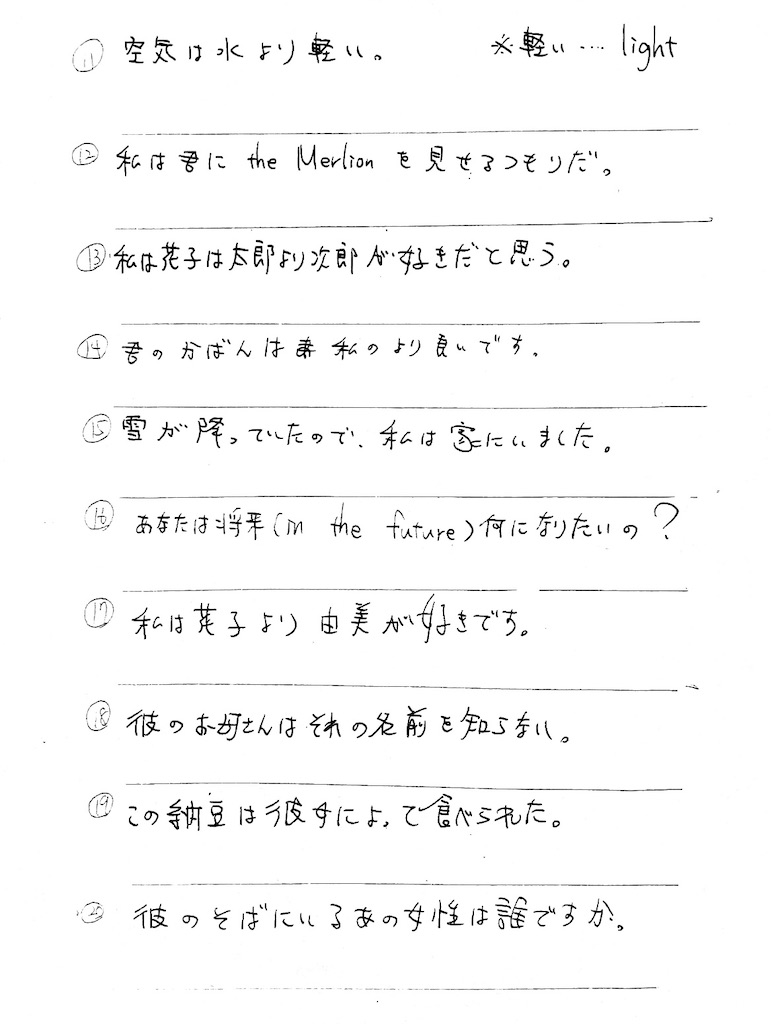 ⑪ 空気は水より軽い。 ※軽い… light
⑫ 私は君に the Merlion を見せるつもりだ。
⑬ 私は花子は太郎より次郎が好きだと思う。
⑭ 君のかばんは 私のより良いです。
⑮ 雪が降っていたので、私は家にいました。
⑯ あなたは将来(in the future)何になりたいの？
⑰ 私は花子より由美が好きです。
⑱ 彼のお母さんはそれの名前を知らない。
⑲ この納豆は彼女によって食べられた。
⑳ 彼のそばにいるあの女性は誰ですか。